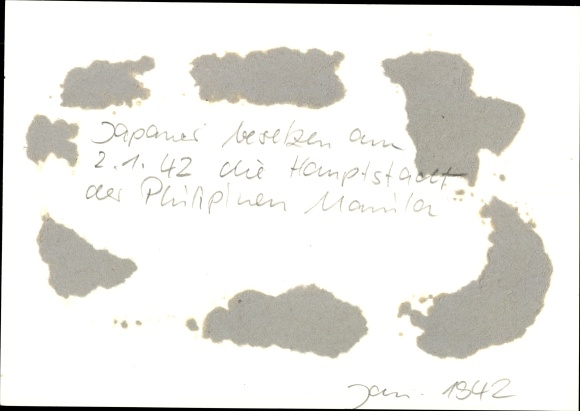 Japaner besetzen am
2.1.42 die Hauptstadt
der Philipinen Manila
Jan. 1942